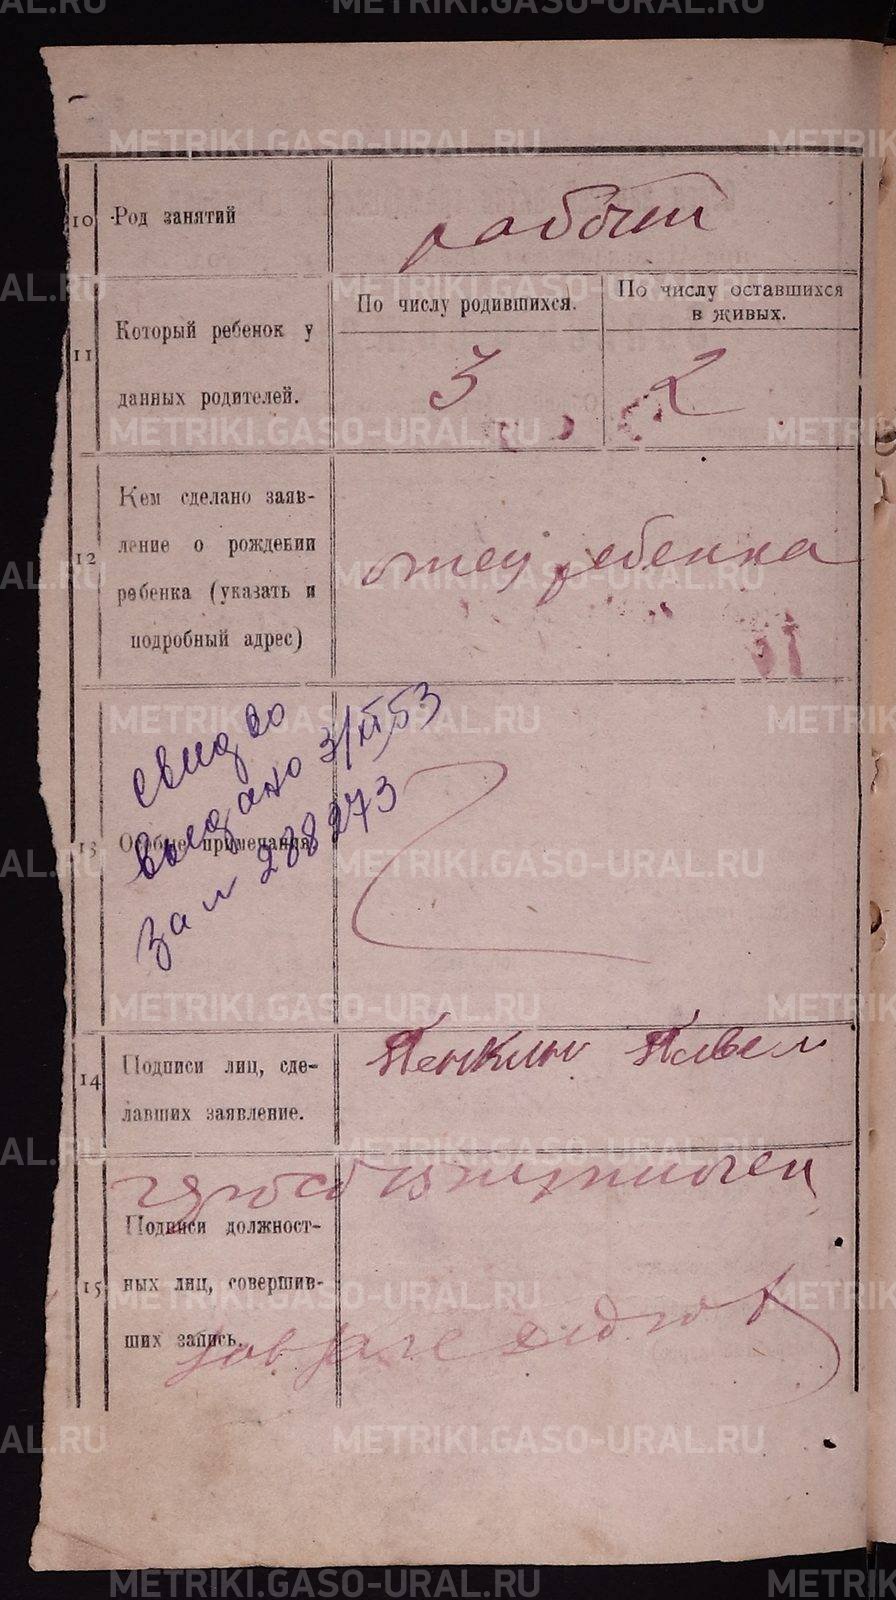 METRIKI.GASO-URAL.RU
10 Род занятий
рабочий
11 Который ребенок у
данных родителей.
По числу родившихся.
По числу оставшихся
в живых.
3
2
12 Кем сделано заяв-
ление о рождении
ребенка (указать и
подробный адрес)
отец ребенка
13 Особые примечания
свид во
выдано 3/XI 53
за № 238273
14 Подписи лиц, сде-
лавших заявление.
Пенкин Павел
15 Подписи должност-
ных лиц, совершив-
ших запись.